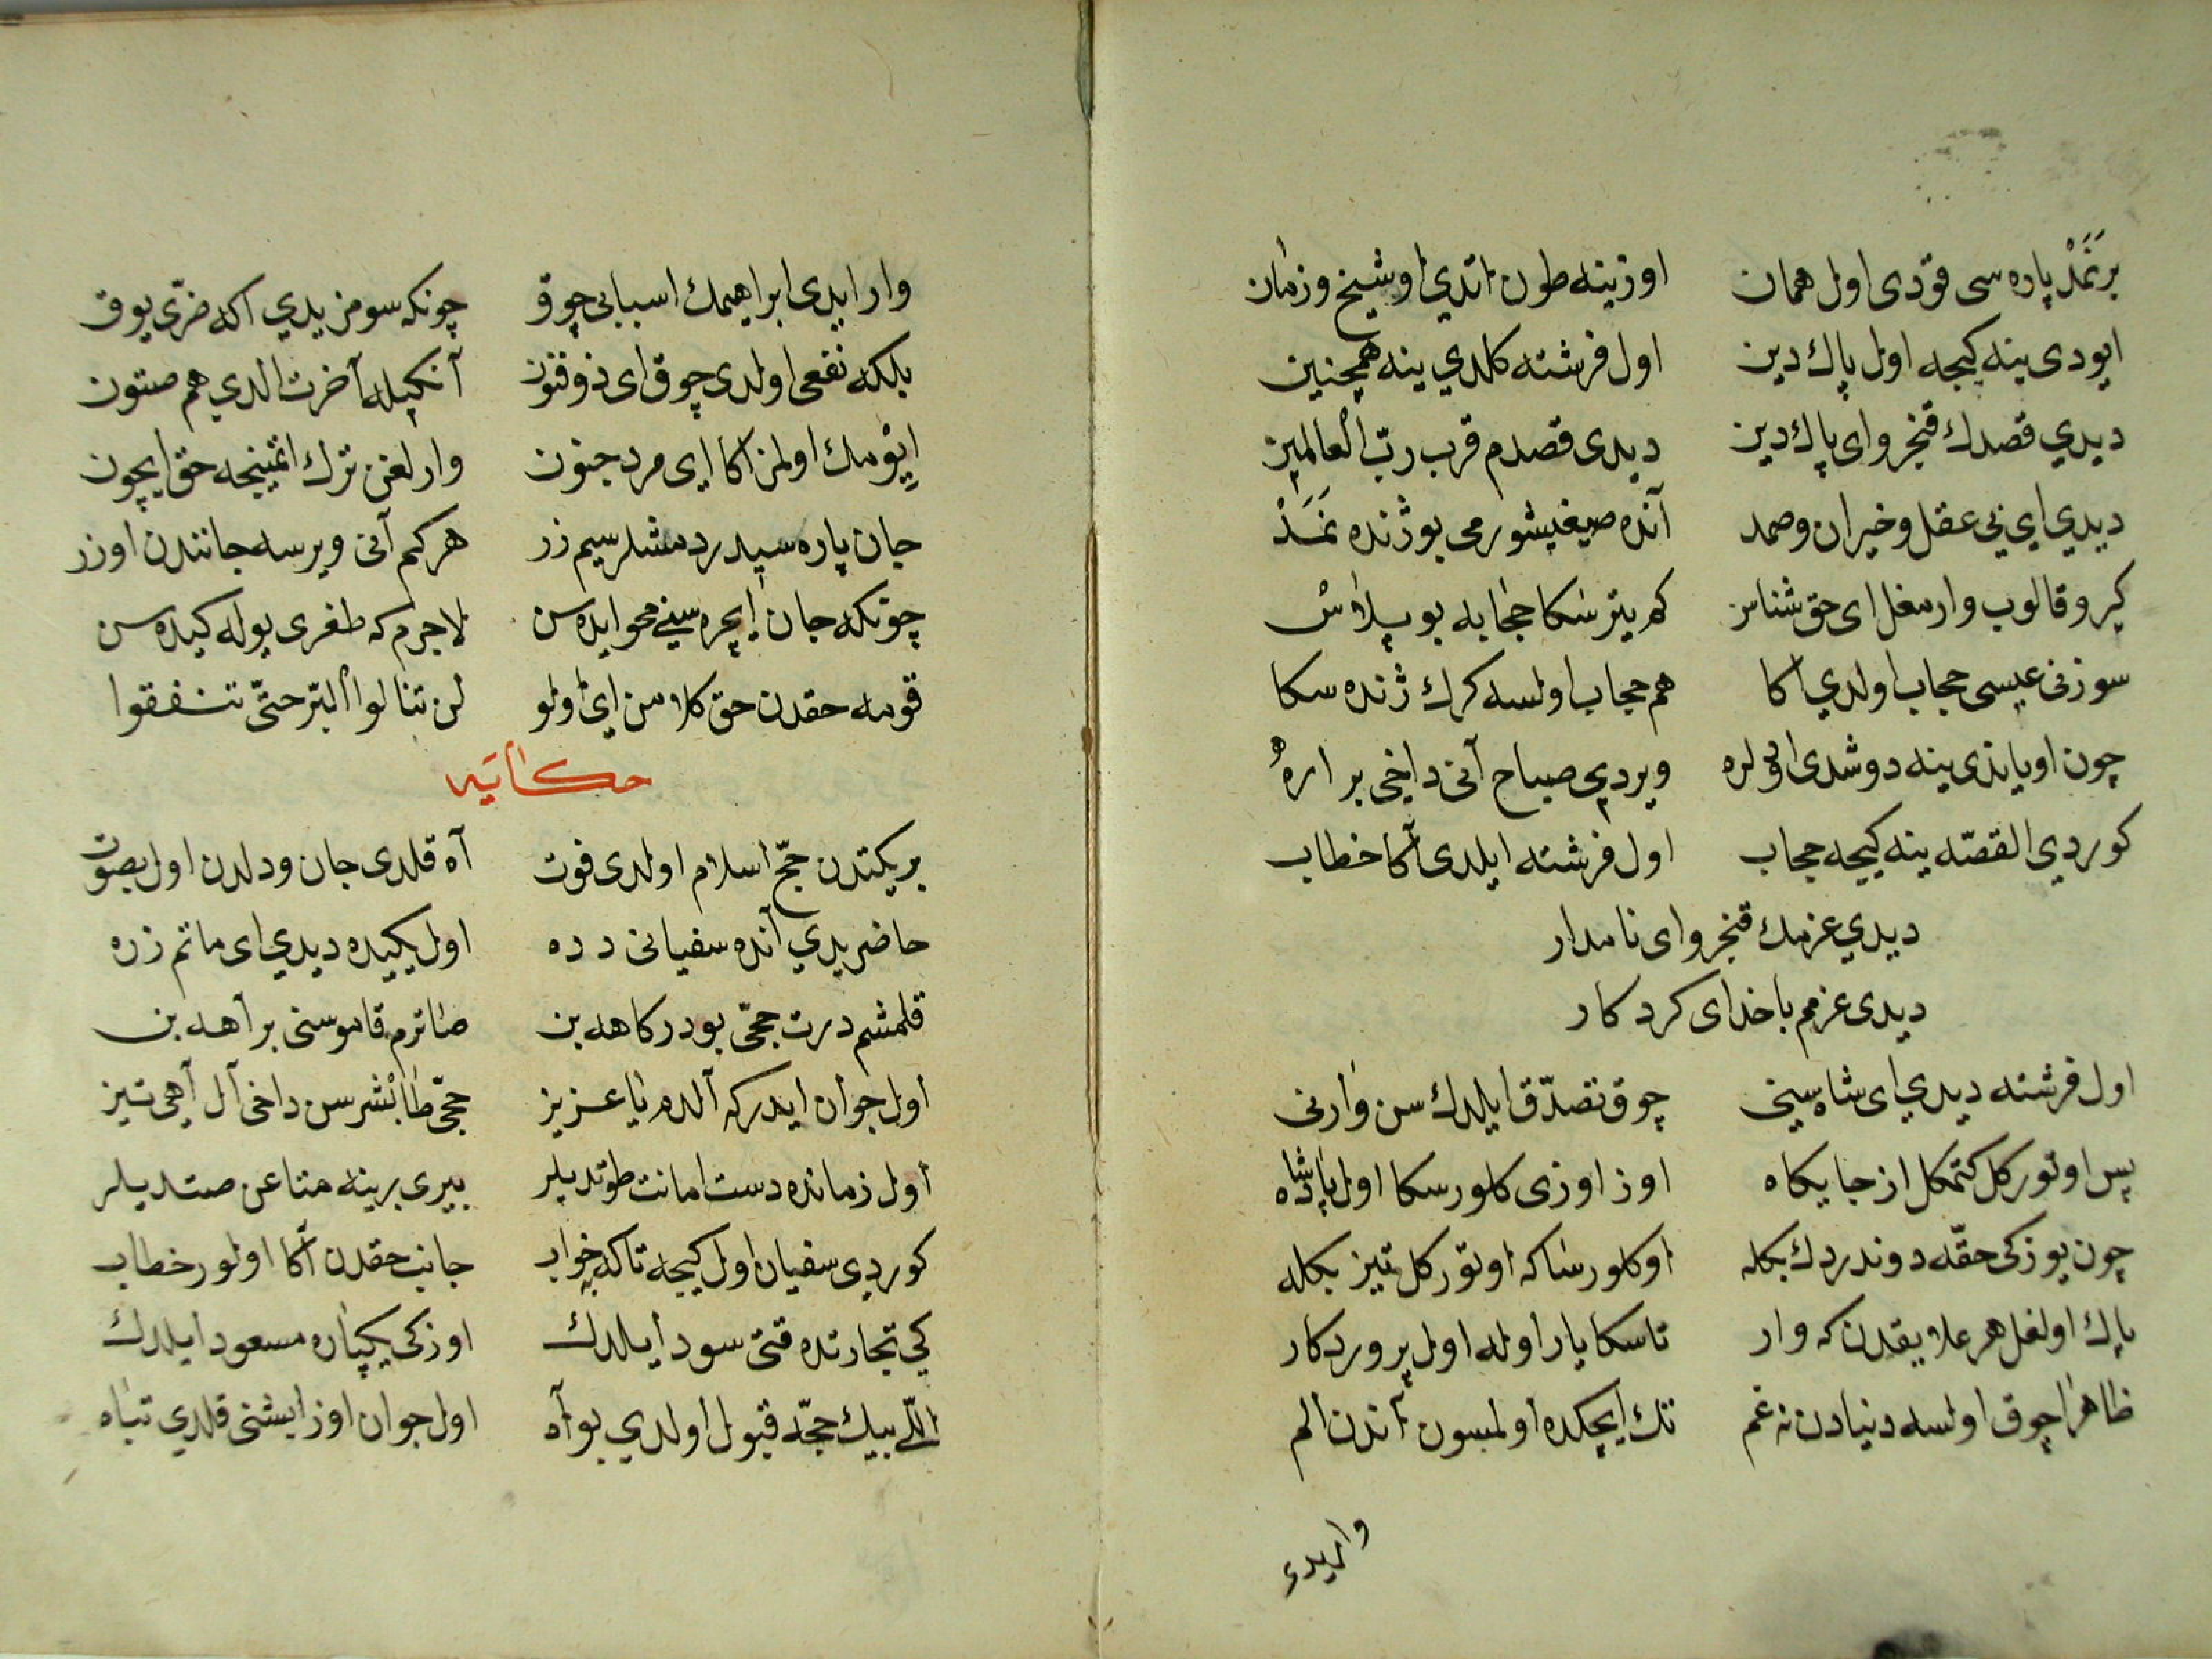 برنمد پاره سی قودی اول همان اوزینه طون اتدی اوشیخ وزمان
ایودی ینه کیجه اول پاك دین اول فرشته کلدي ینه همچنین
دیدي قصدك قنجرو ای پاك دین دیدی قصدم قرب ربّ العالمین
دیدي اي بي عقل وخیران وصمد آنده صیغیشورمی بو ژنده نمد
کیرو قالوب وارمغل ای حق شناس که یترسکا حجابه بو پلاس
سوزنی عیسی حجاب اولدي اکا هم حجاب اولسه کرك ژنده سکا
چون اویاندی ینه دوشدی لره ویردي صباح آنی داخی بر اره
کوردي القصّه ینه کیجه حجاب اول فرشته ایلدی آکا خطاب
دیدي عزمك قنجرو ای نامدار
دیدی عزمم با خدای کردکار
اول فرشته دیدي ای شاه سینی چوق تصدّق ایلدك سن وارنی
پس اوتورکل کتمکل از جایکاه اوز اوزی کلورسکا اول پادشاه
چون یوزکی حقّه دوندردك بکله اوکلورساکه اوتورکل تیز بکله
پاك اولغل هر علایقدن که وار تاسکا یار اوله اول پروردکار
ظاهرا چوق اولسه دنیادن نه غم تك ایچکده اولمسون آندن الم
واریدی
وار ایدی ابراهیمك اسبابی چوق چونکه سومزیدي اکه ضرّی یوق
بلکه نفعی اولدی چوق ای ذوفنون آنکیله آخرت الدي هم صتون
ایومك اولمز اکا ای مرد جنون وارلغن ترك اتمینجه حق ایچون
جان پاره سیدر دمشلر سیم زر هرکم آنی ویرسه جانندن اوزر
چونکه جان ایچره سینی محو ایده سن لاجرم که طغری یوله کیده سن
قومه حقدن حق کلامن ای اولو لن تنالوا البرّ حتّی تنفقوا
حکایه
بریکتدن حجّ اسلام اولدی فوت آه قلدی جان ودلدن اول بصوت
حاضریدي آنده سفیانی دده اول یکیده دیدي ای ماتم زده
قلمشم درت حجّی بو درکاهده بن صاترم قاموسنی بر آهه بن
اول جوان ایدرکه آلدم یا عزیز حجّی طابشرسن داخی آل آهی تیز
اول زمانده دست امانت طوتدیلر بیری برینه متاعن صتدیلر
کوردي سفیان اول کیجه تاکه خواب جانب حقدن اکا اولور خطاب
کي تجارتده قتی سود ایلدك اوزکی یکپاره مسعود ایلدك
اللّی بیك حجّه قبول اولدي بو آه اول جوان اوز ایشنی قلدي تباه